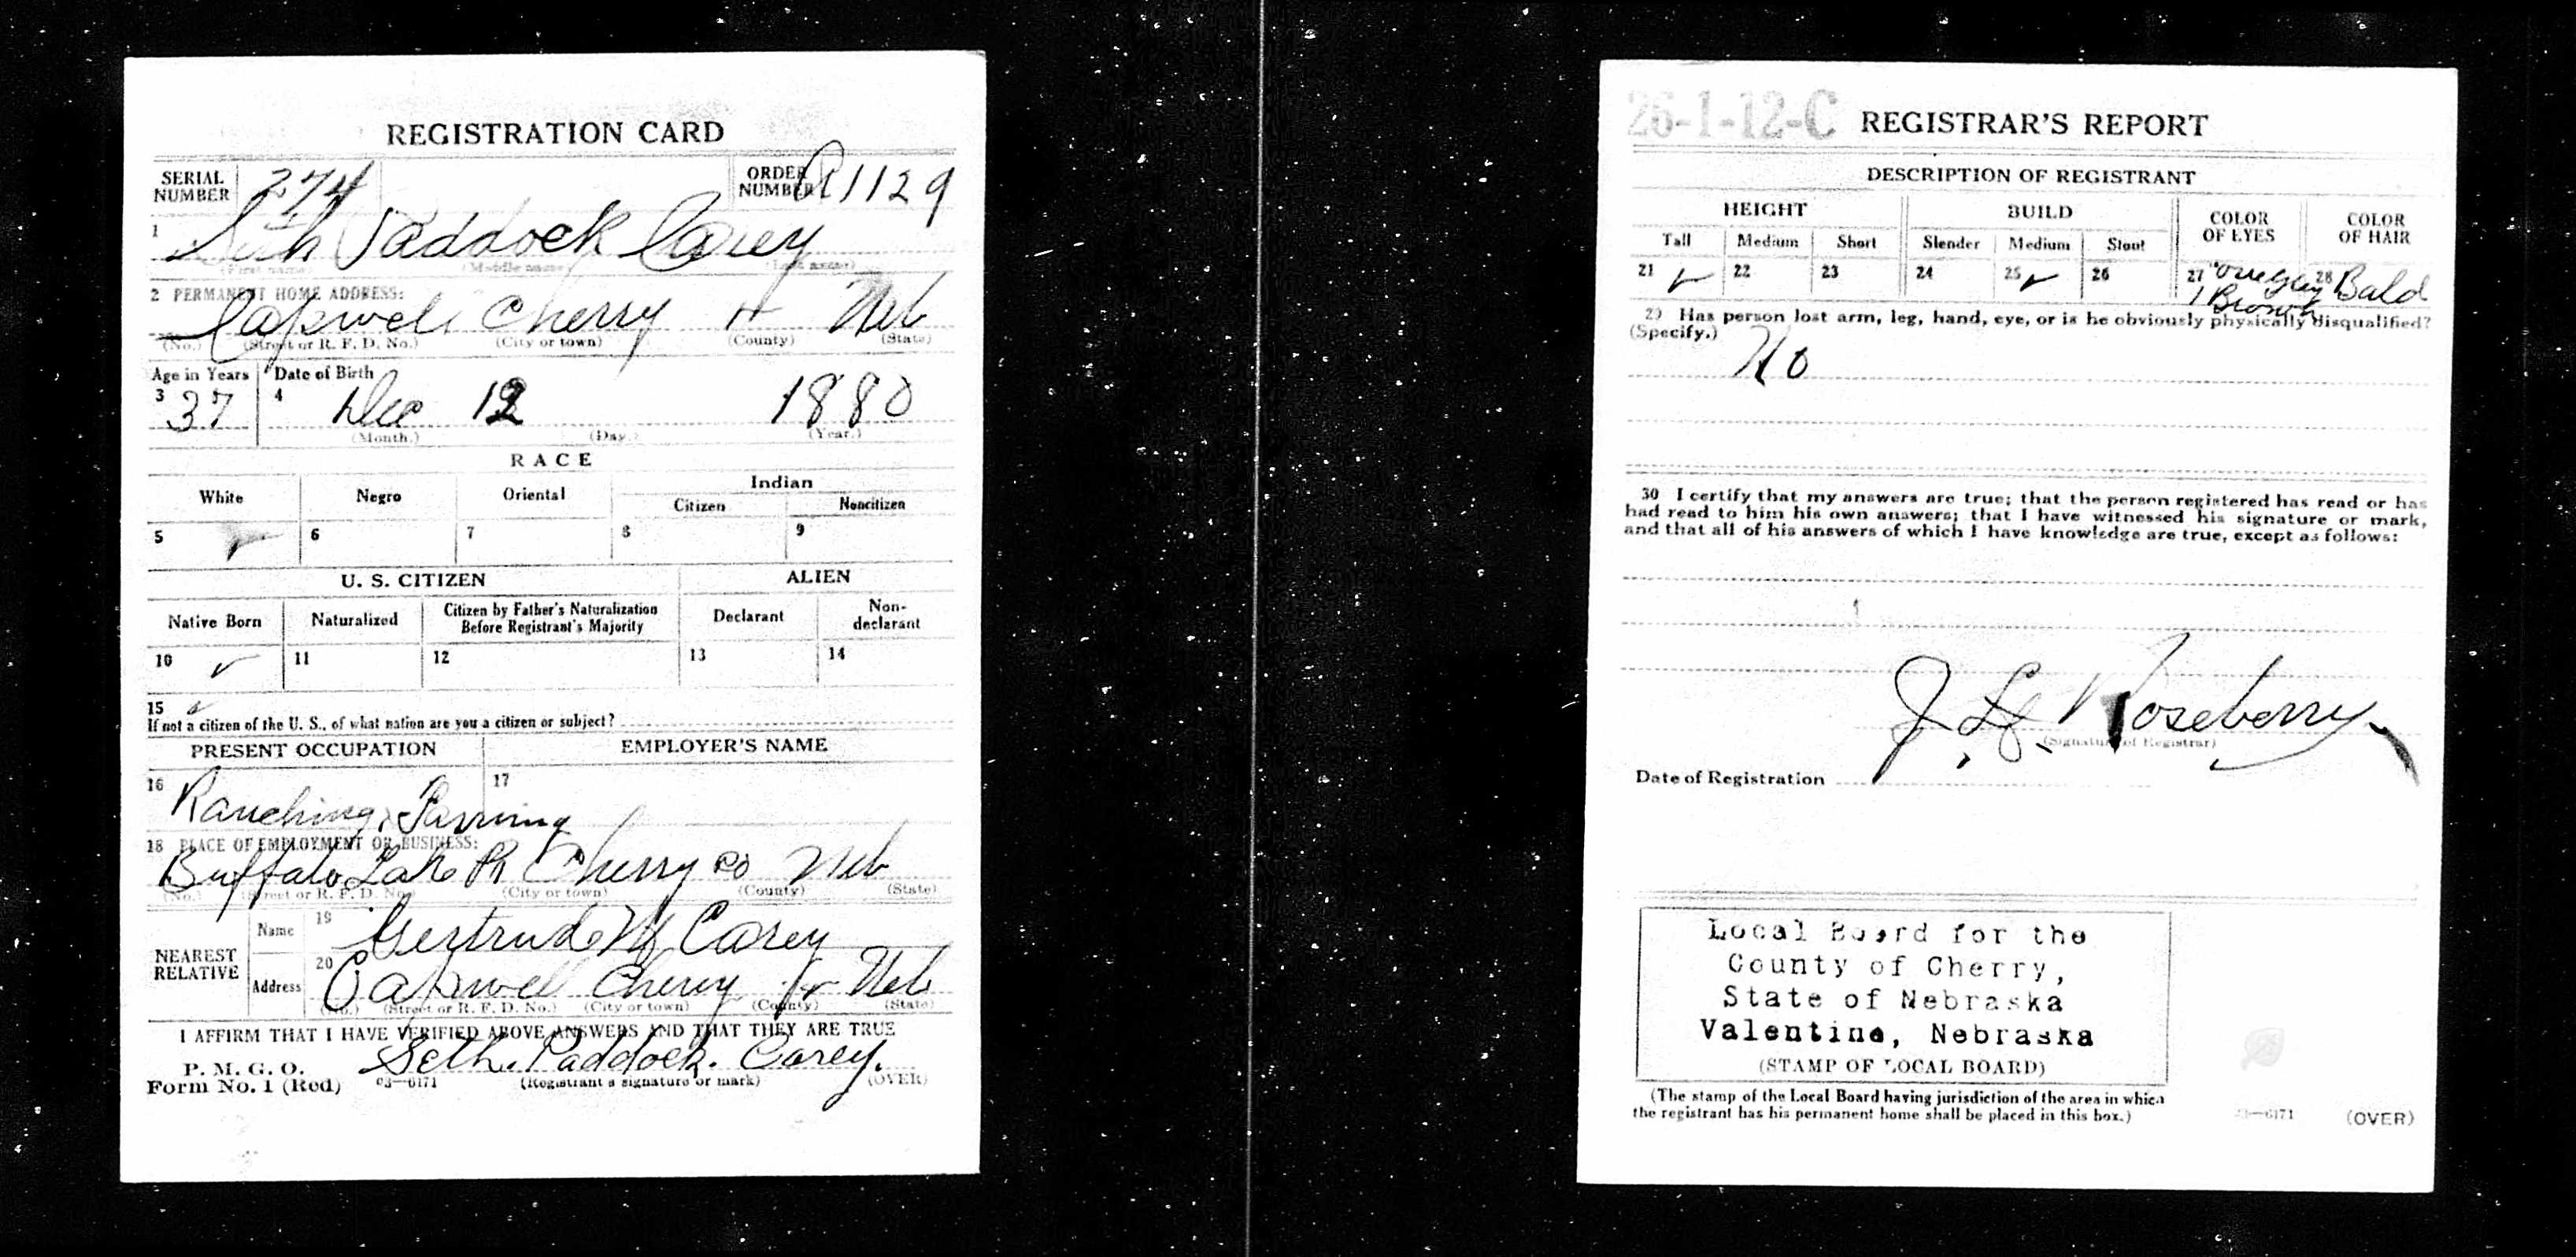 REGISTRATION CARD
SERIAL NUMBER 274 ORDER NUMBER A1129
1 Seth Paddock Carey
(First name) (Middle name) (Last name)
2 PERMANENT HOME ADDRESS:
Cherry Neb
(No.) (Street or R. F. D. No.) (City or town) (County) (State)
Age in Years Date of Birth
3 37 4 Dec 12 1880
(Month.) (Day.) (Year.)
RACE
White Negro Oriental Indian
Citizen Noncitizen
5 6 7 8 9
U. S. CITIZEN ALIEN
Native Born Naturalized Citizen by Father's Naturalization Before Registrant's Majority Declarant Non-declarant
10 ✓ 11 12 13 14
15
If not a citizen of the U. S., of what nation are you a citizen or subject?
PRESENT OCCUPATION EMPLOYER'S NAME
16 Ranching, Farming 17
18 PLACE OF EMPLOYMENT OR BUSINESS:
Buffalo Lake Cherry co Neb
(No.) (Street or R. F. D. No.) (City or town) (County) (State)
NEAREST RELATIVE
Name 19 Gertrude M Carey
Address 20 Cherry Neb
(No.) (Street or R. F. D. No.) (City or town) (County) (State)
I AFFIRM THAT I HAVE VERIFIED ABOVE ANSWERS AND THAT THEY ARE TRUE
P. M. G. O.
Form No. 1 (Red) 03—6171 Seth. Paddock. Carey.
(Registrant's signature or mark) (OVER)
26-1-12-C REGISTRAR'S REPORT
DESCRIPTION OF REGISTRANT
HEIGHT BUILD COLOR OF EYES COLOR OF HAIR
Tall Medium Short Slender Medium Stout
21 ✓ 22 23 24 25 ✓ 26 27 1 Brown 28 Bald
29 Has person lost arm, leg, hand, eye, or is he obviously physically disqualified?
(Specify.) No
30 I certify that my answers are true; that the person registered has read or has
had read to him his own answers; that I have witnessed his signature or mark,
and that all of his answers of which I have knowledge are true, except as follows:
Roseberry
(Signature of Registrar)
Date of Registration
Local Board for the
County of Cherry,
State of Nebraska
Valentine, Nebraska
(STAMP OF LOCAL BOARD)
(The stamp of the Local Board having jurisdiction of the area in which
the registrant has his permanent home shall be placed in this box.)
03—6171 (OVER)